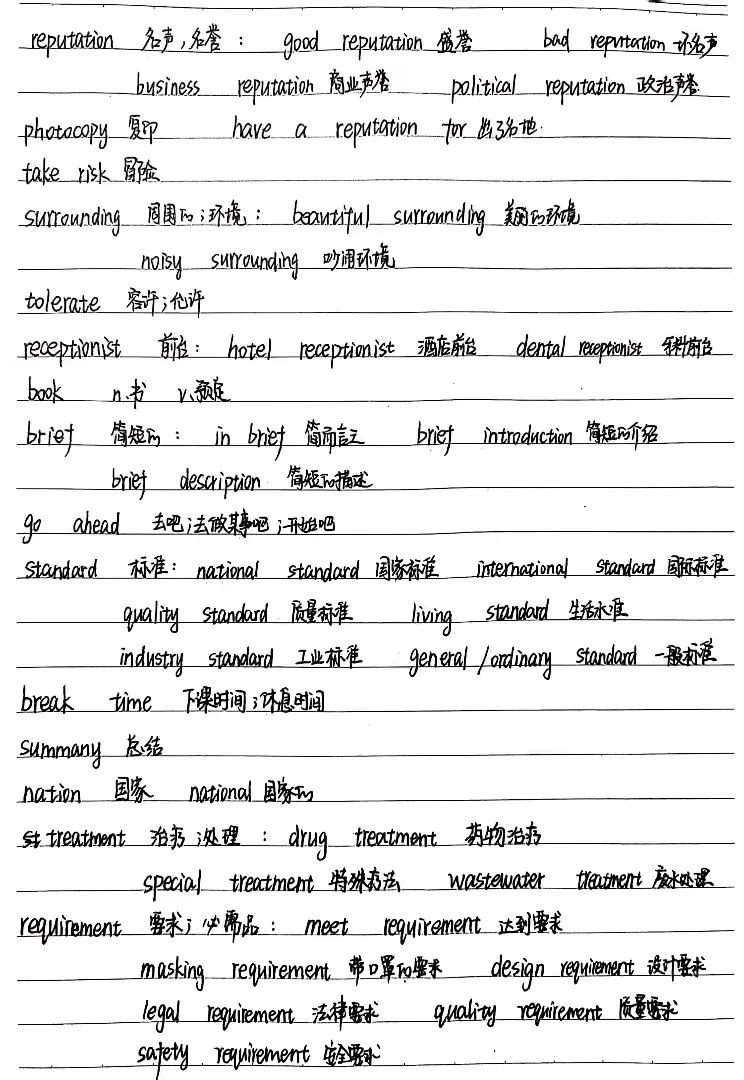 reputation 名声,名誉: good reputation 盛誉 bad reputation 坏名声
business reputation 商业声誉 political reputation 政治声誉
photocopy 复印 have a reputation for 出了名地.
take risk 冒险
surrounding 周围的;环境: beautiful surrounding 美丽的环境
noisy surrounding 吵闹环境
tolerate 容许;允许
receptionist 前台: hotel receptionist 酒店前台 dental receptionist 牙科前台
book n.书 v.预定
brief 简短的: in brief 简而言之 brief introduction 简短的介绍
brief description 简短的描述
go ahead 去吧;去做某事吧;开始吧
standard 标准: national standard 国家标准 international standard 国际标准
quality standard 质量标准 living standard 生活水准
industry standard 工业标准 general/ordinary standard 一般标准
break time 下课时间;休息时间
summany 总结
nation 国家 national 国家的
treatment 治疗;处理: drug treatment 药物治疗
special treatment 特殊疗法 wastewater treatment 废水处理
requirement 要求;必需品: meet requirement 达到要求
masking requirement 带口罩的要求 design requirement 设计要求
legal requirement 法律要求 quality requirement 质量要求
safety requirement 安全要求